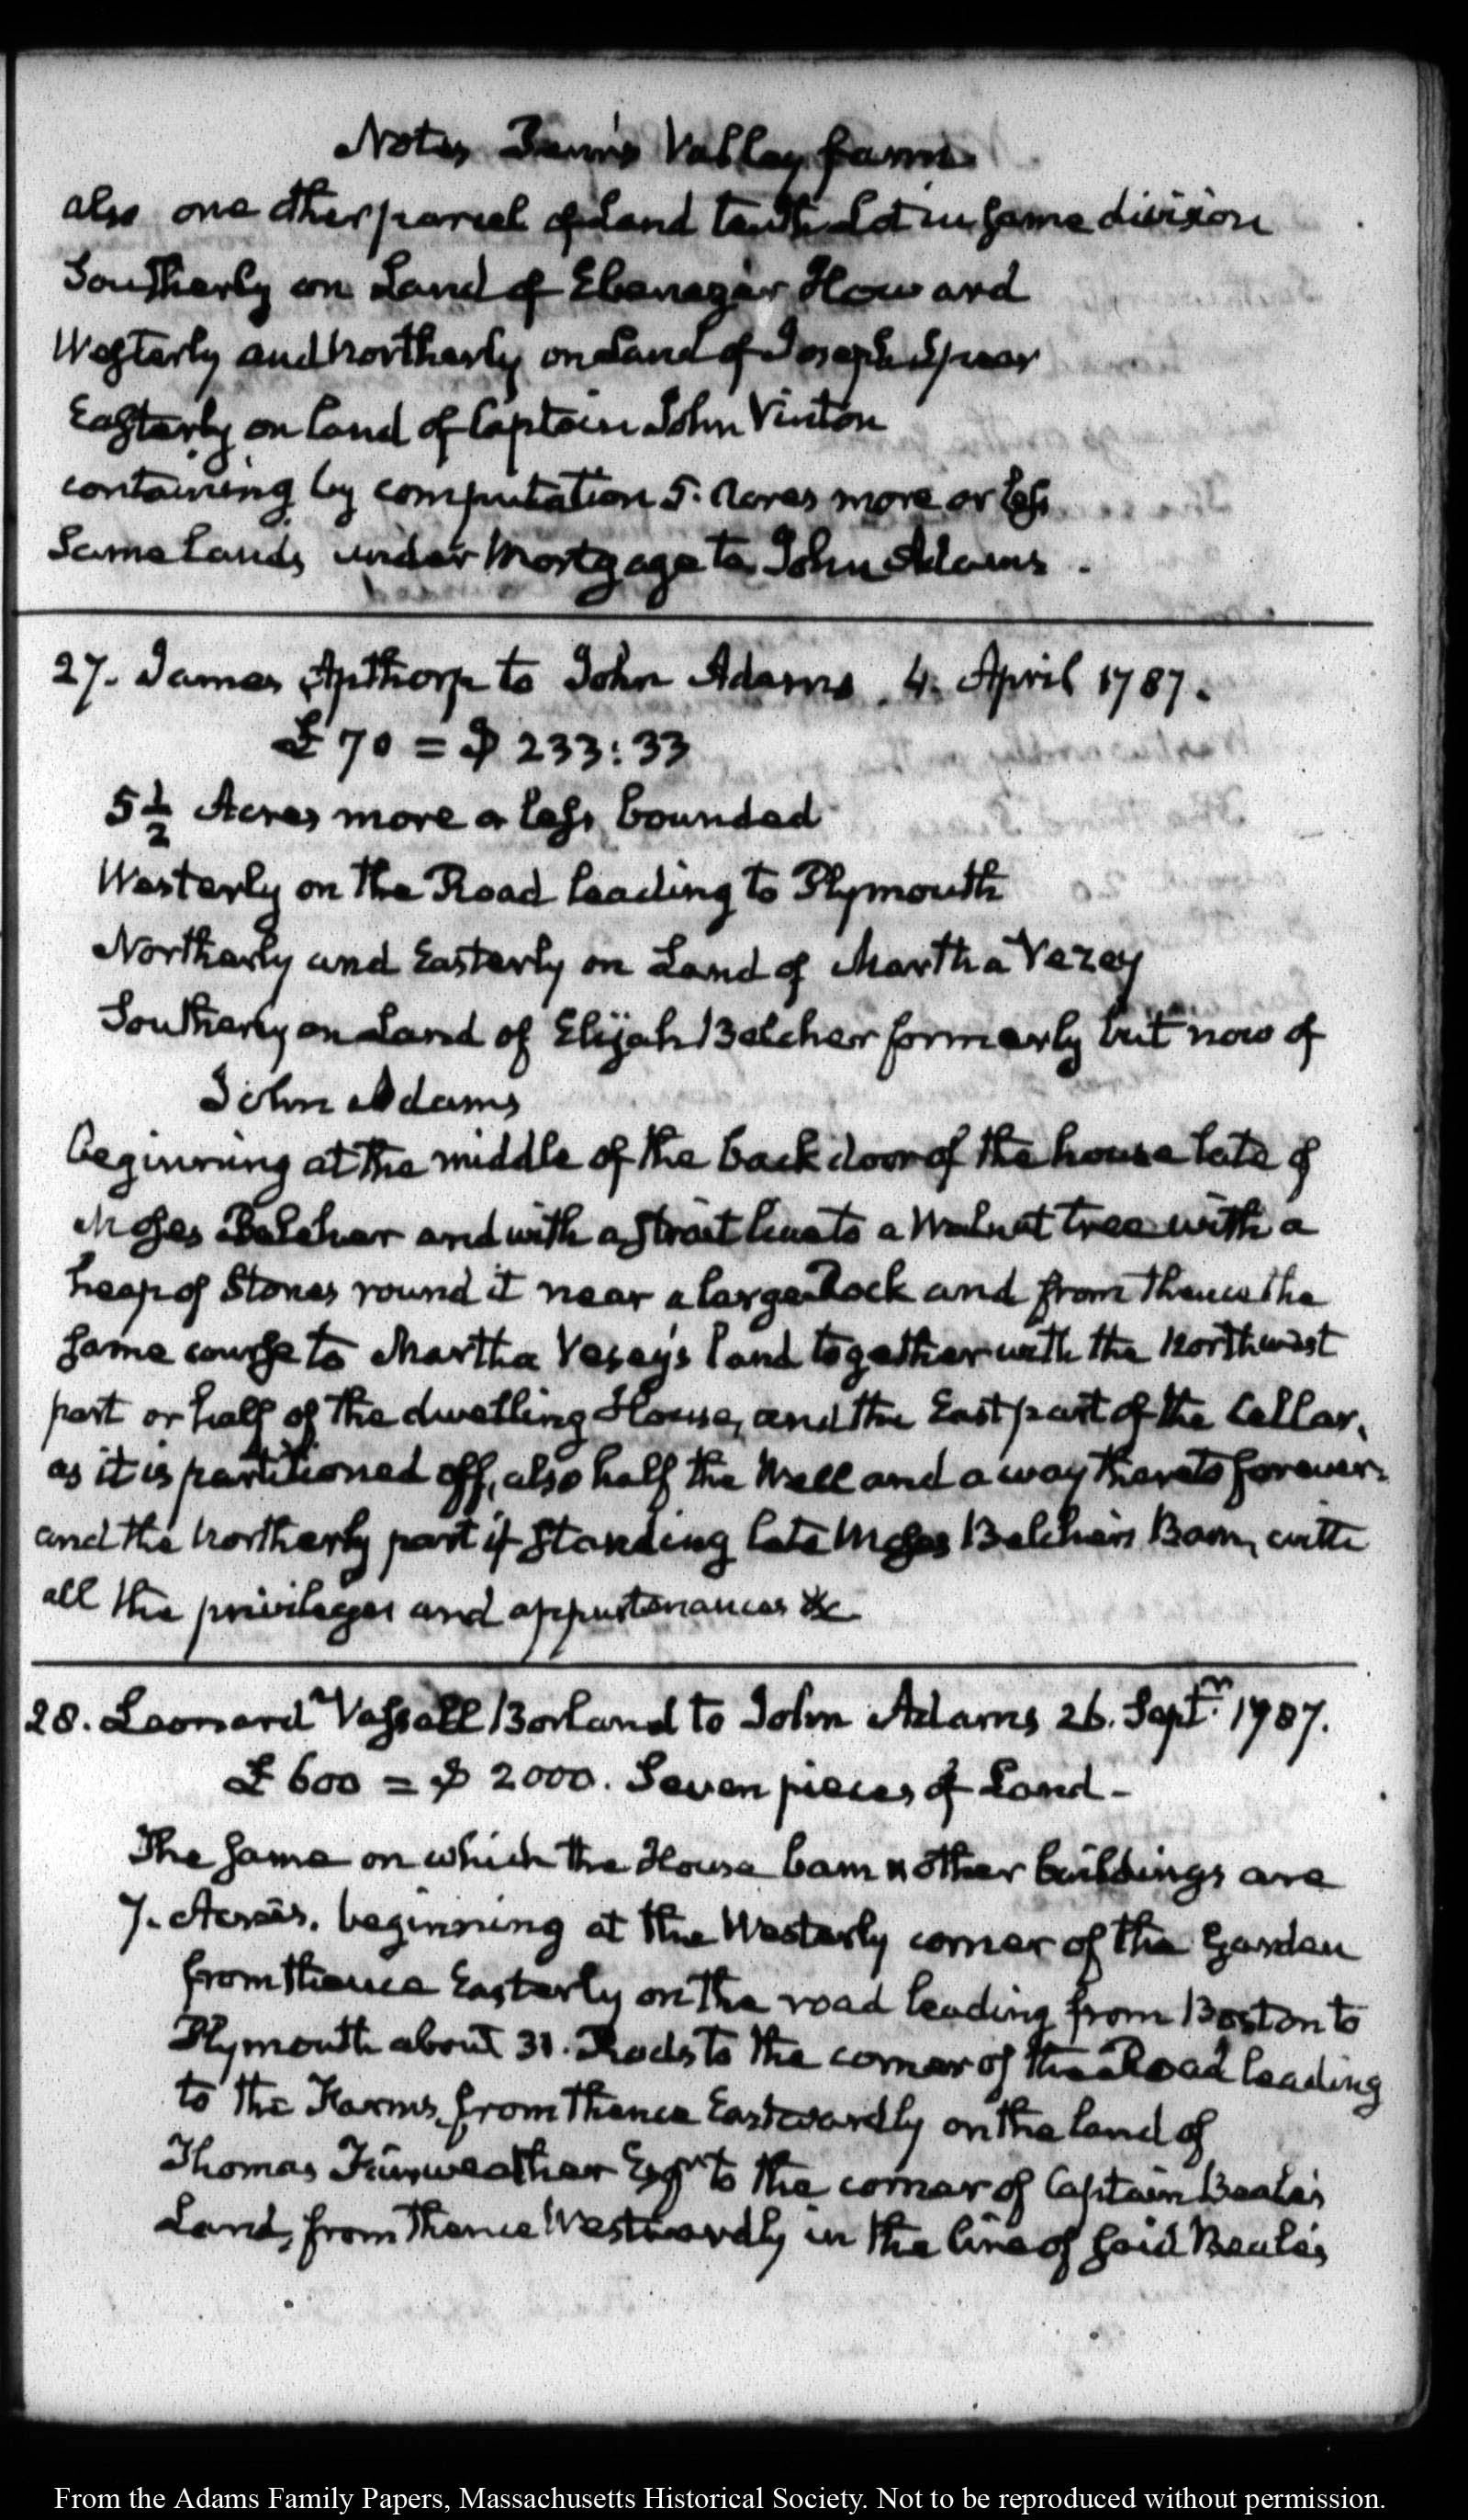 Notes Penn's Valley farm
also one other parcel of Land tenth Lot in same division
Southerly on Land of Ebenezer Howard
Westerly and Northerly on Land of Joseph Spear
Easterly on land of Captain John Vinton
containing by computation 5. Acres more or less
Same lands under Mortgage to John Adams.
27. James Apthorp to John Adams. 4. April 1787.
£ 70 = $ 233:33
5 1/2 Acres more or less, bounded
Westerly on the Road leading to Plymouth
Northerly and Easterly on Land of Martha Vezey
Southerly on Land of Elijah Belcher formerly but now of
John Adams
beginning at the middle of the back door of the house late of
Moses Belcher and with a strait line to a Walnut tree with a
heap of Stones round it near a large Rock and from thence the
same course to Martha Vesey's land together with the Northwest
part or half of the dwelling House, and the East part of the Cellar,
as it is partitioned off, also half the Well and a way thereto forever.
and the Northerly part if standing late Moses Belcher's Barn, with
all the privileges and appurtenances &c
28. Leonard Vassall Borland to John Adams 26. Septr. 1787.
£ 600 = $ 2000. Seven pieces of Land-
The same on which the House barn & other buildings are
7. Acres. beginning at the Westerly corner of the Garden
from thence Easterly on the road leading from Boston to
Plymouth about 31. Rods to the corner of the Road leading
to the Farms, from thence Eastwardly on the land of
Thomas Fairweather Esqr to the corner of Captain Beale's
Land, from thence Westwardly in the line of said Beale's
From the Adams Family Papers, Massachusetts Historical Society. Not to be reproduced without permission.